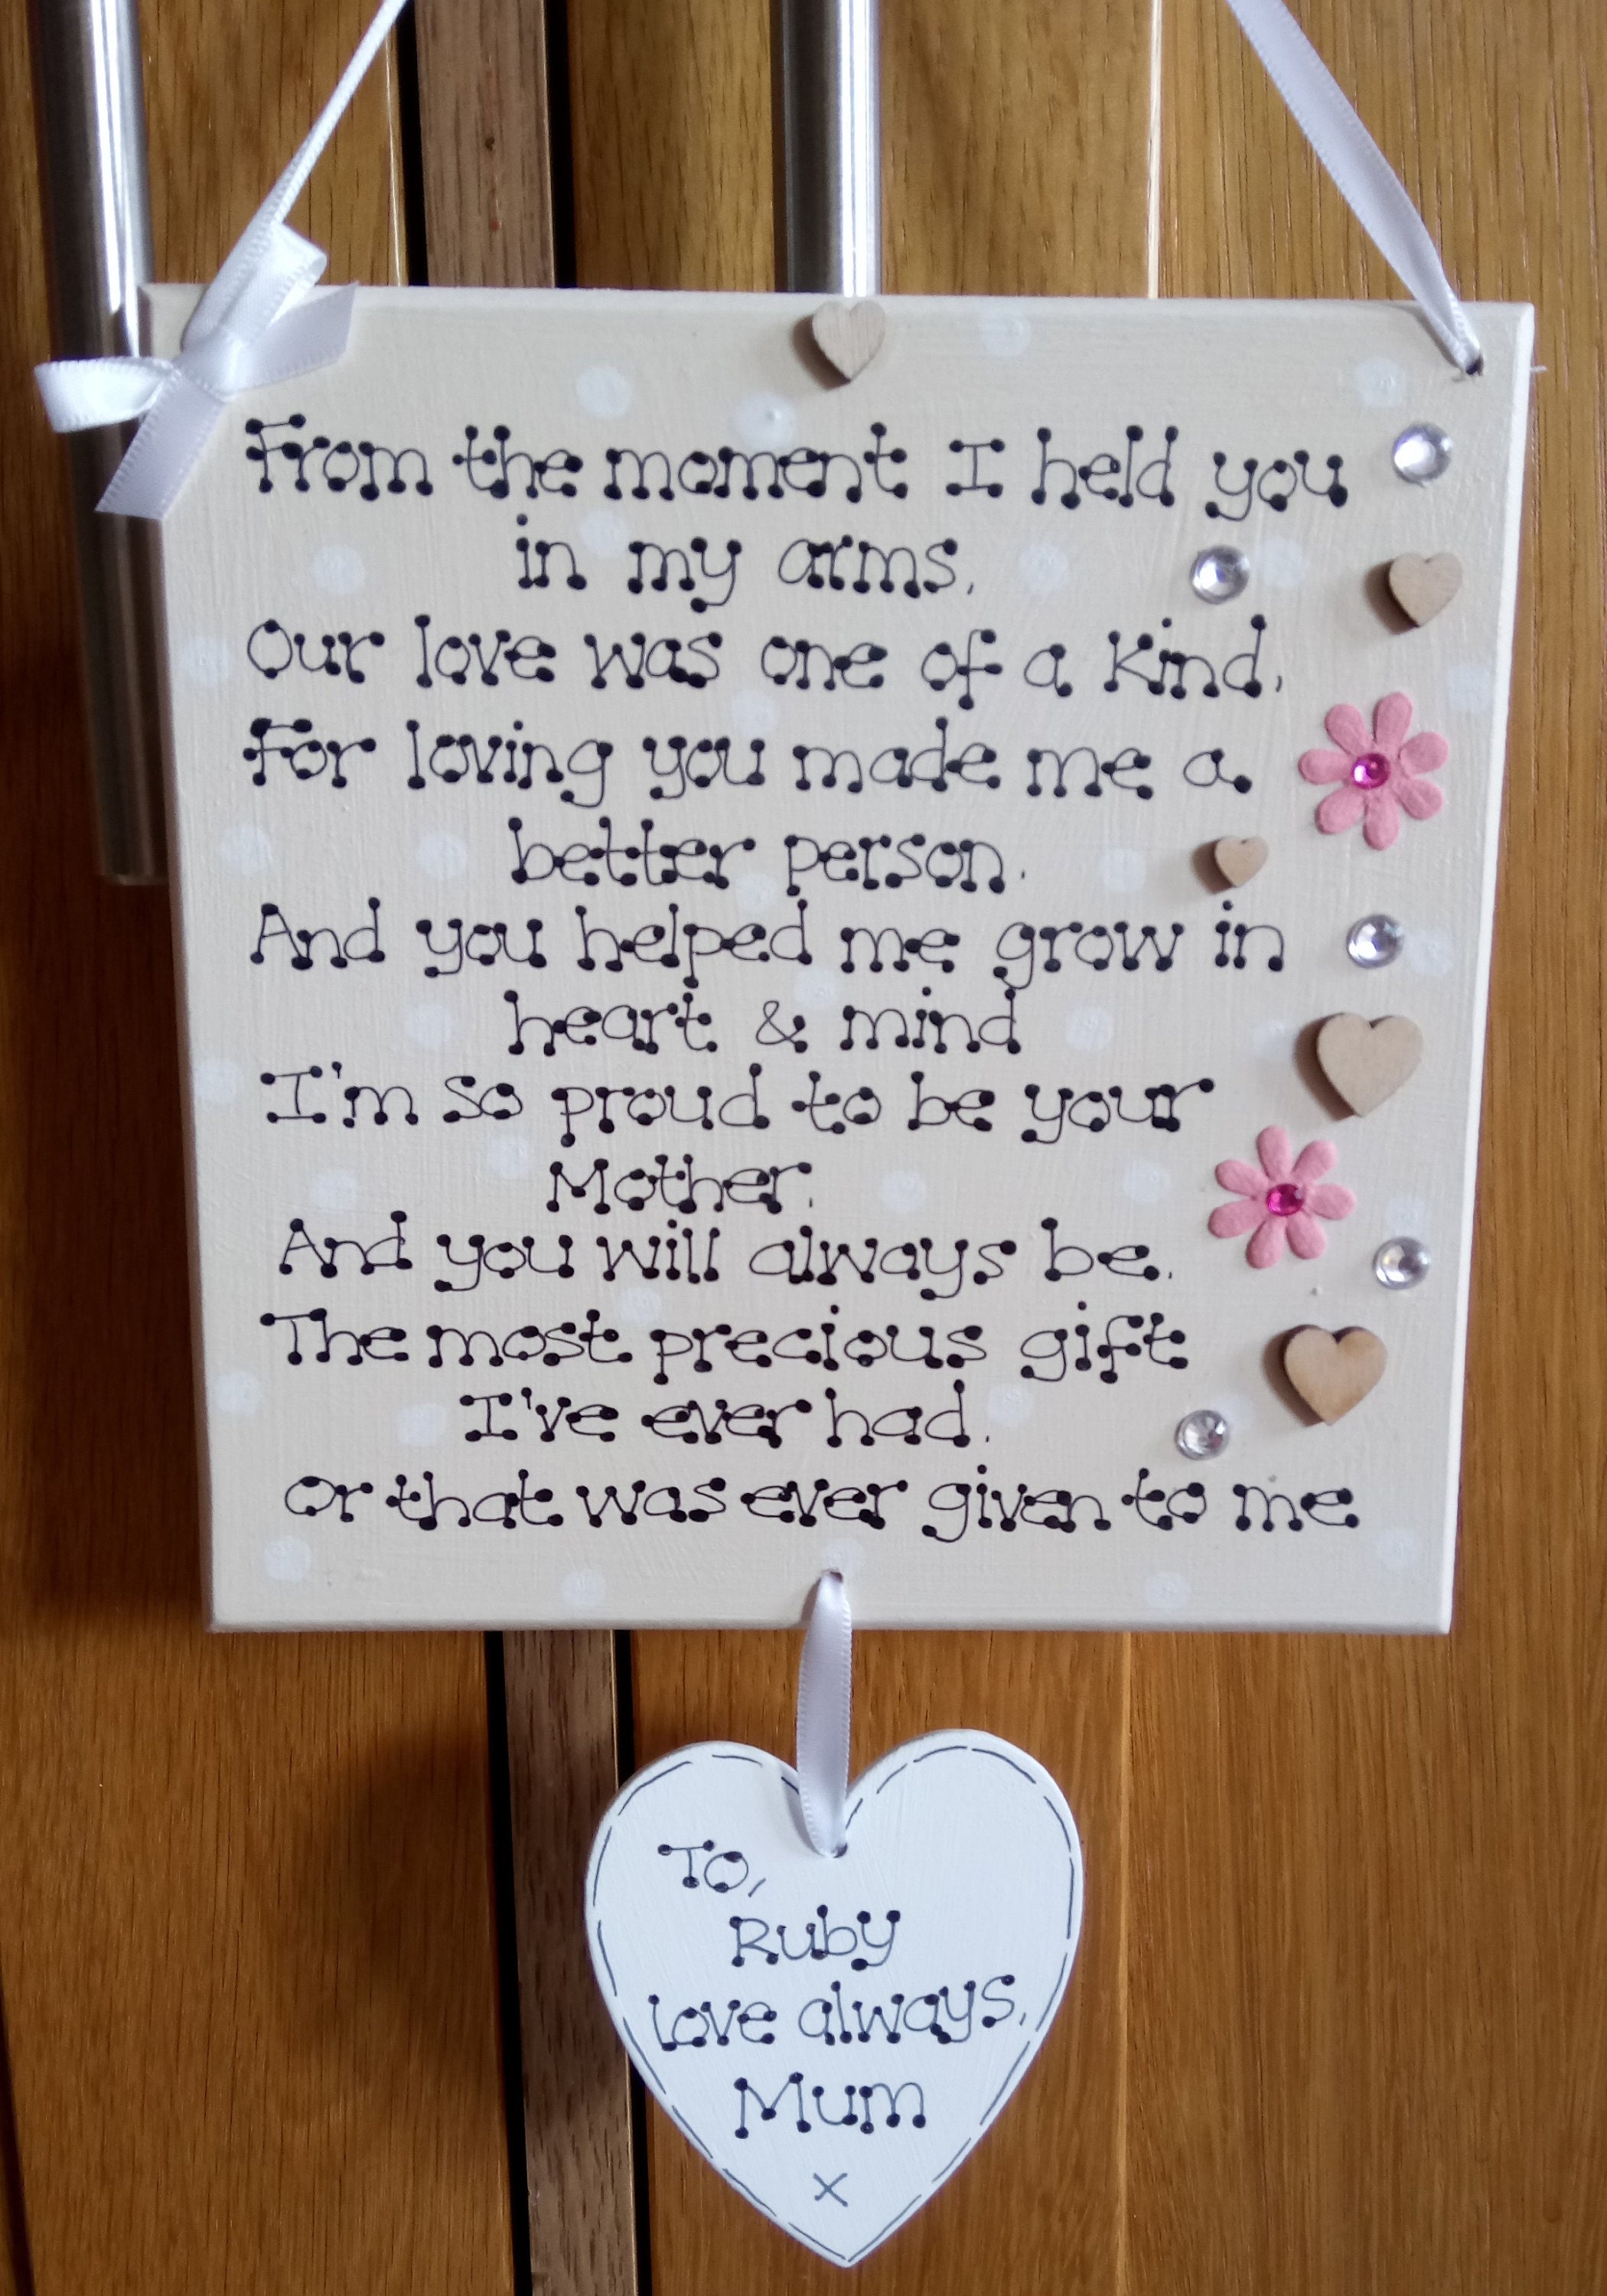 From the moment I held you
in my arms,
Our love was one of a kind,
For loving you made me a
better person.
And you helped me grow in
heart & mind
I'm so proud to be your
Mother.
And you will always be.
The most precious gift
I've ever had.
Or that was ever given to me
To,
Ruby
love always,
Mum
x